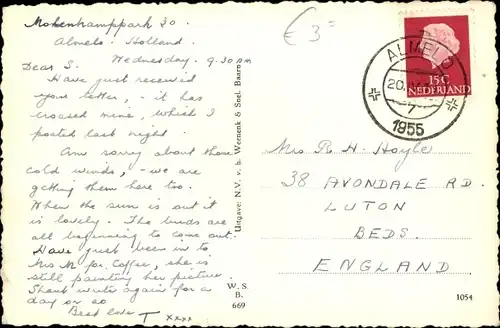 Mohenkamppark 30.
Almelo. Holland.
Wednesday. 9.30 am
Dear S.
Have just receiv'd
your letter, - it has
crossed mine, which I
posted last night.
Am sorry about those
cold winds, - we are
getting them here too.
When the sun is out it
is lovely. The buds are
all beginning to come out.
Have just been in to
Mrs M for coffee, she is
still painting her picture.
Shall write again for a
day or so
Best love T xxxx
Uitgave: N.V. v. h. Weenenk & Snel, Baarn
W. S.
B.
669
€ 3=
ALMELO
20.
7
1955
15 C
NEDERLAND
Mrs R. H. Hoyle
38 AVONDALE RD.
LUTON
BEDS.
ENGLAND
1054